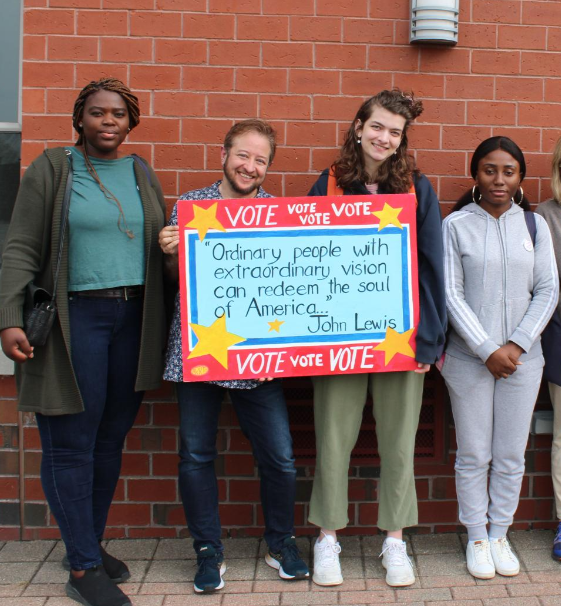 VOTE VOTE VOTE VOTE
"Ordinary people with
extraordinary vision
can redeem the soul
of America..."
John Lewis
VOTE VOTE VOTE